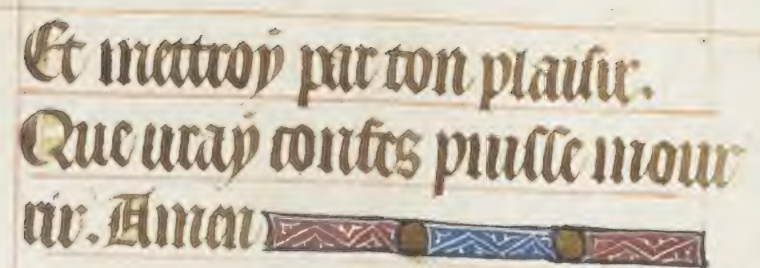 Et mettroy par ton plaisir.
Que uray confes puisse mour
rir. Amen